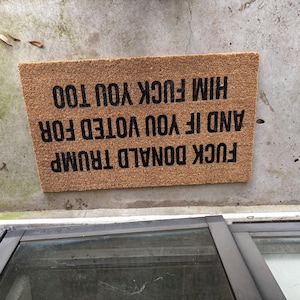 FUCK DONALD TRUMP
AND IF YOU VOTED FOR
HIM FUCK YOU TOO